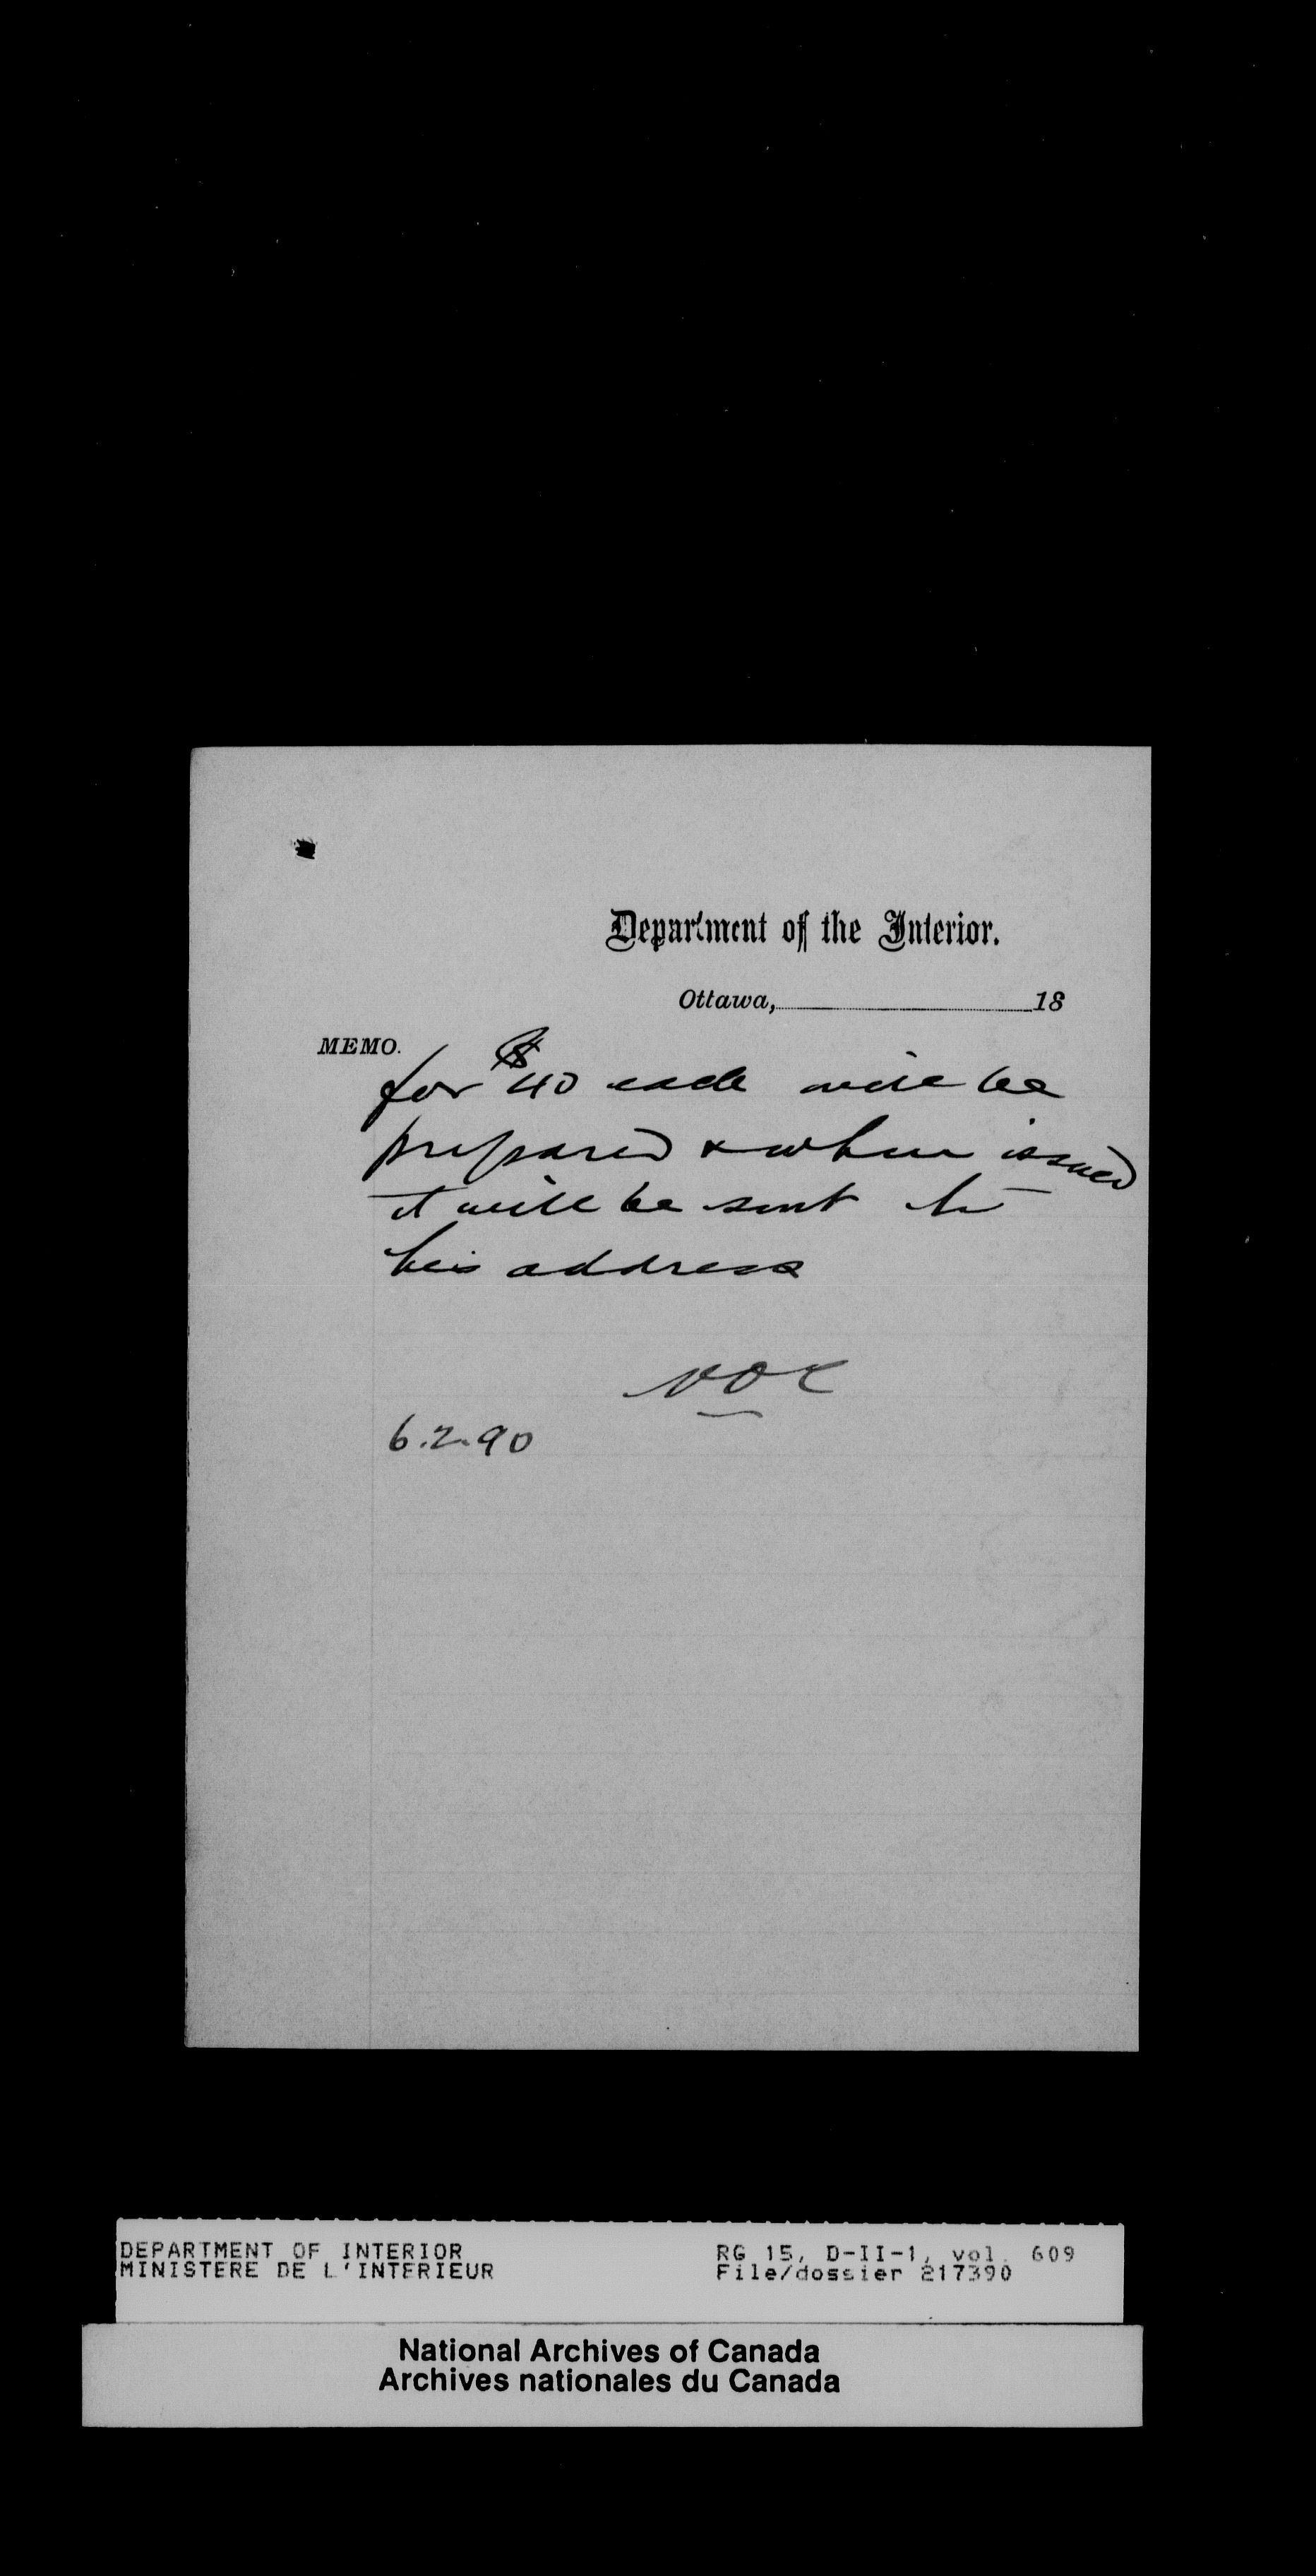 Department of the Interior.
Ottawa, 18
MEMO.
for $40 each will be
prepared & when issued
it will be sent to
his address
6.2.90
DEPARTMENT OF INTERIOR
MINISTERE DE L'INTERIEUR
RG 15, D-II-1, vol. 609
File/dossier 217390
National Archives of Canada
Archives nationales du Canada